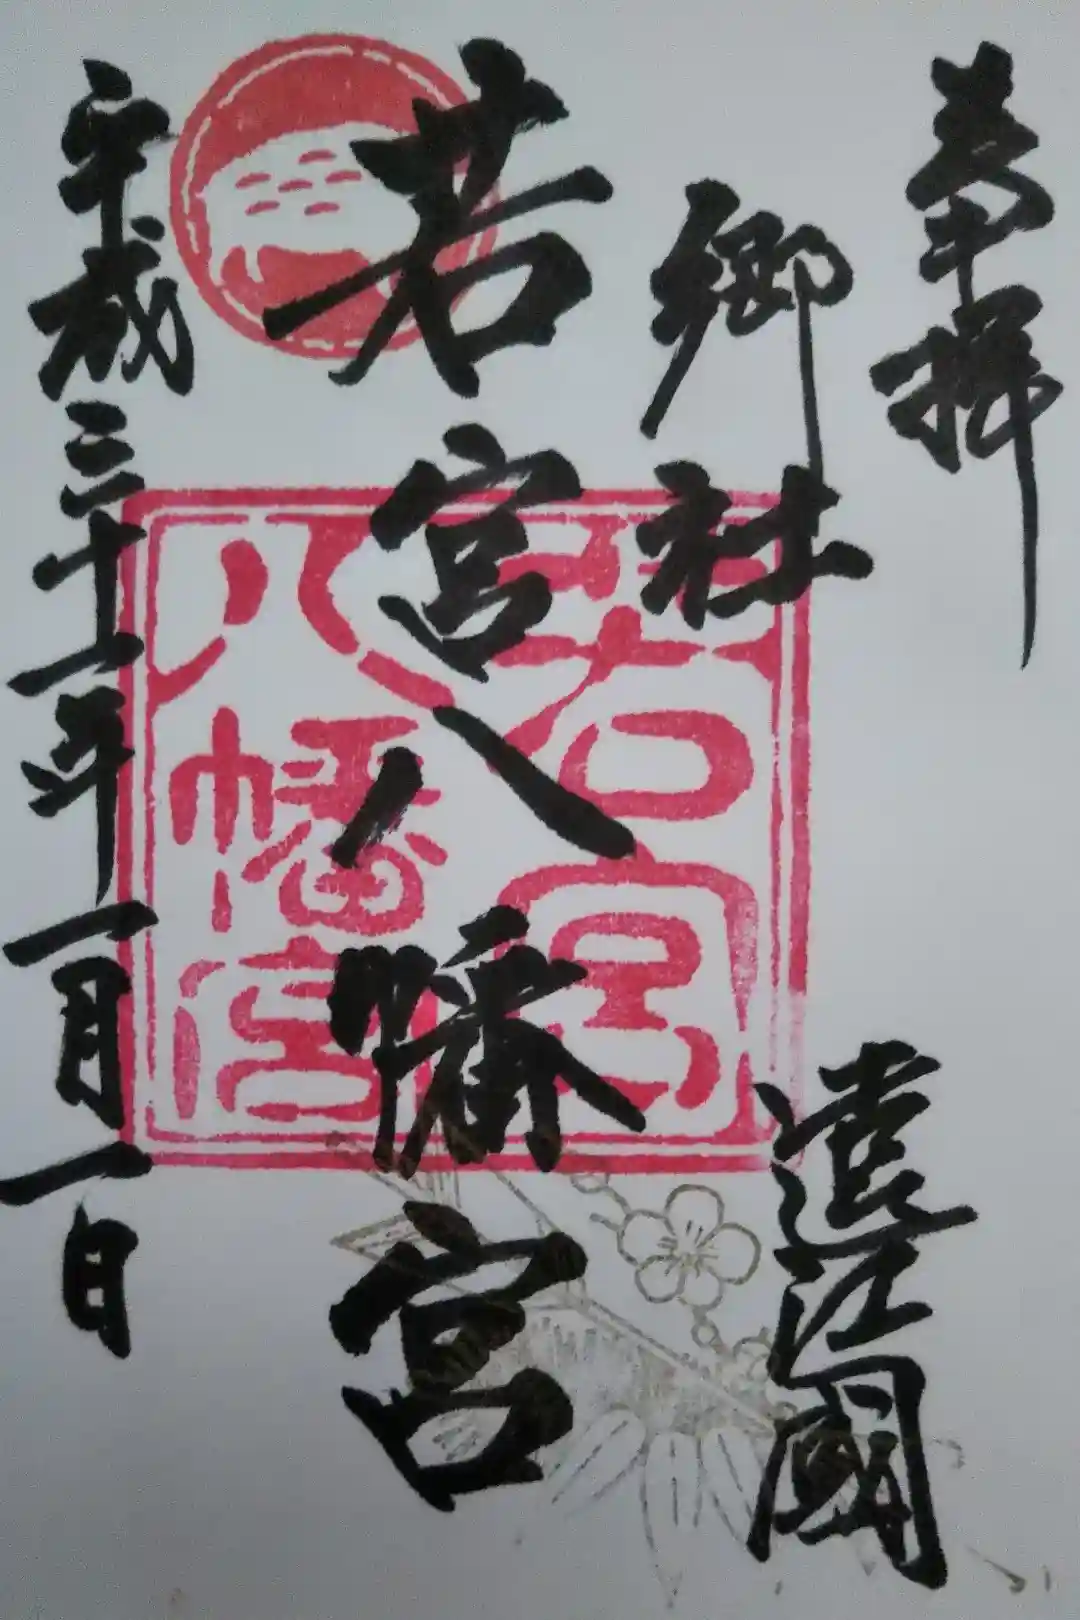 奉拝
遠江國
郷社
若宮八幡宮
平成三十一年一月一日
若宮
八幡宮